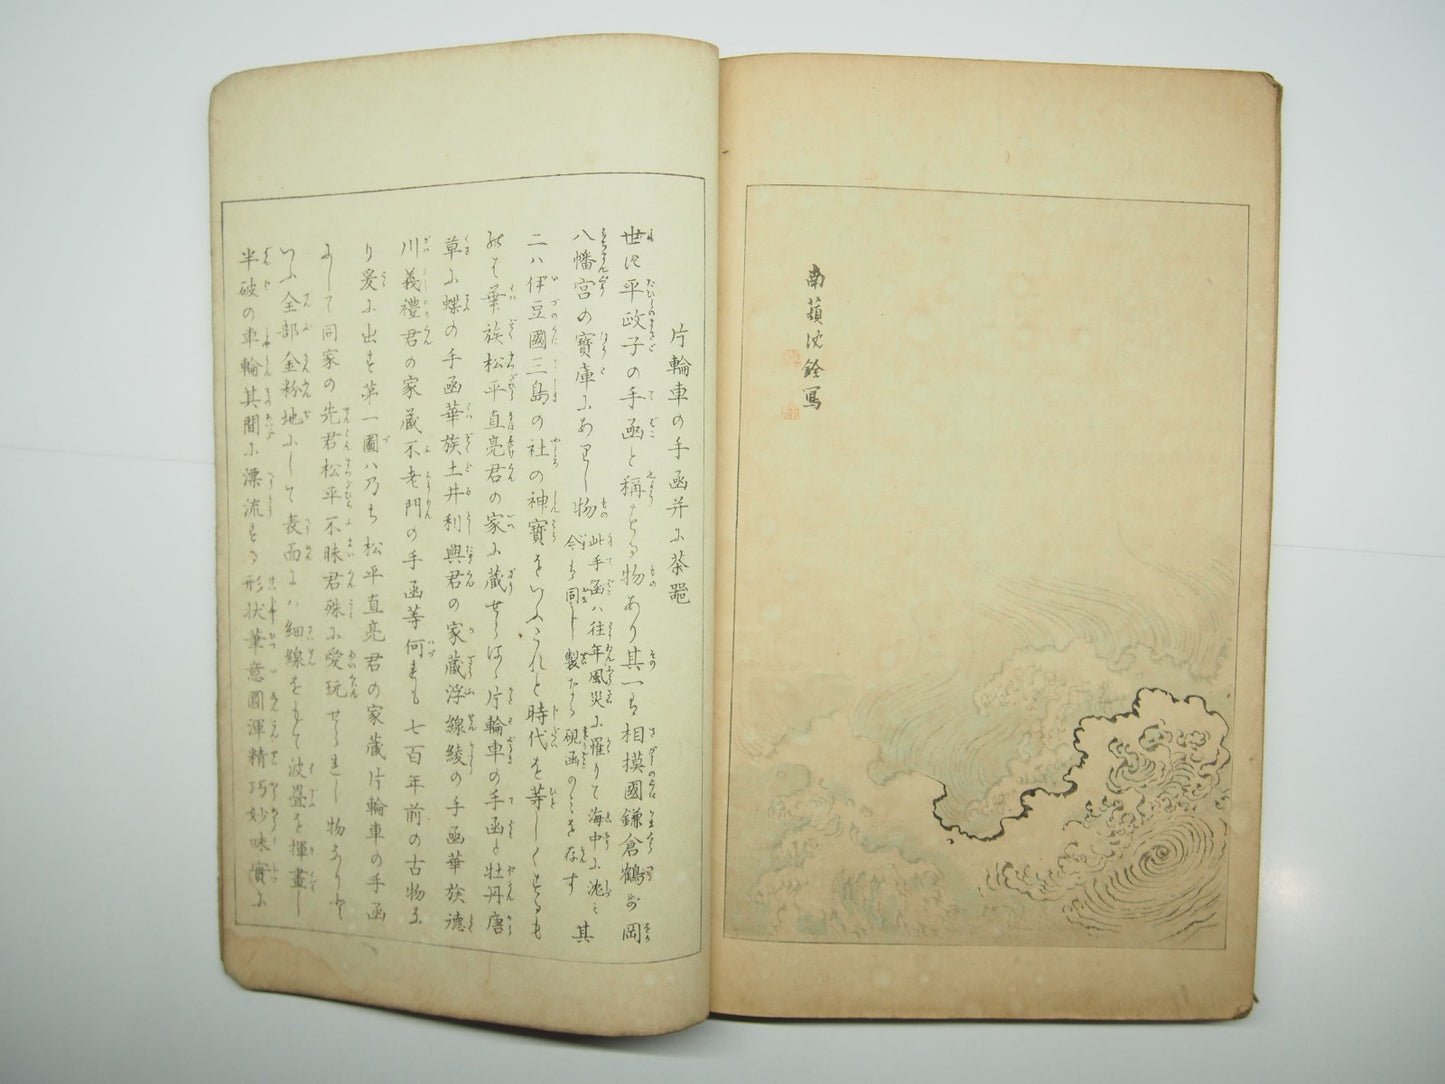 南蘋沈銓寫
片輪車の手函并に茶器
世に平政子の手函と稱する物あり其一は相摸國鎌倉鶴が岡
八幡宮の寶庫にありし物此手函ハ往年風災に罹りて海中に沈ミ今も同じ製なる硯函のミを存す其
二ハ伊豆國三島の社の神寶をいふこれと時代を等しくするも
のは華族松平直亮君の家に蔵せらるゝ片輪車の手函と牡丹唐
草に蝶の手函華族土井利興君の家蔵浮線綾の手函華族德
川義禮君の家蔵不老門の手函等何れも七百年前の古物な
り爰に出す第一圖ハ乃ち松平直亮君の家蔵片輪車の手函
にして同家の先君松平不昧君殊に愛玩せられし物なりと
いふ全部金粉地にして表面にハ細線をもて波疊を揮畫し
半破の車輪其間に漂流する形状筆意圓渾精巧妙味實に